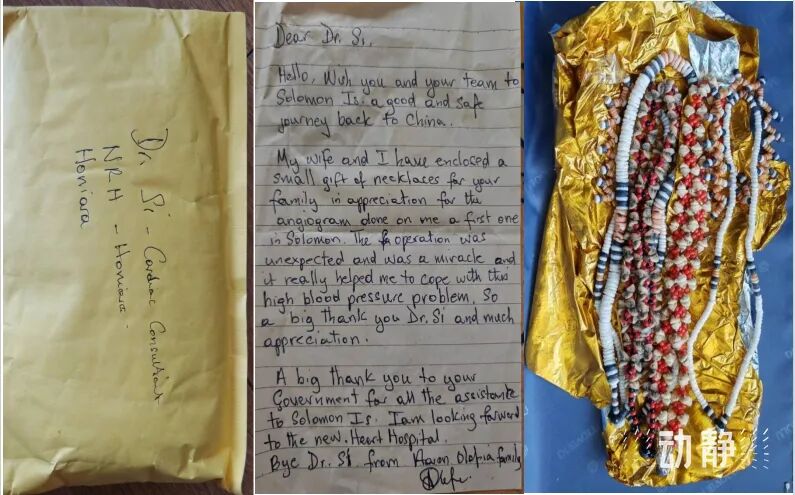 Dr. Si - Cardiac Consultant
NRH - Honiara
Honiara
Dear Dr. Si,
Hello, Wish you and your team to
Solomon Is. a good and safe
journey back to China.
My wife and I have enclosed a
small gift of necklaces for your
family in appreciation for the
angiogram done on me a first one
in Solomon. The operation was
unexpected and was a miracle and
it really helped me to cope with this
high blood pressure problem. So
a big thank you Dr. Si and much
appreciation.
A big thank you to your
Government for all the assistance
to Solomon Is. I am looking forward
to the new Heart Hospital.
Bye Dr. Si from Aaron Olofia family
动静